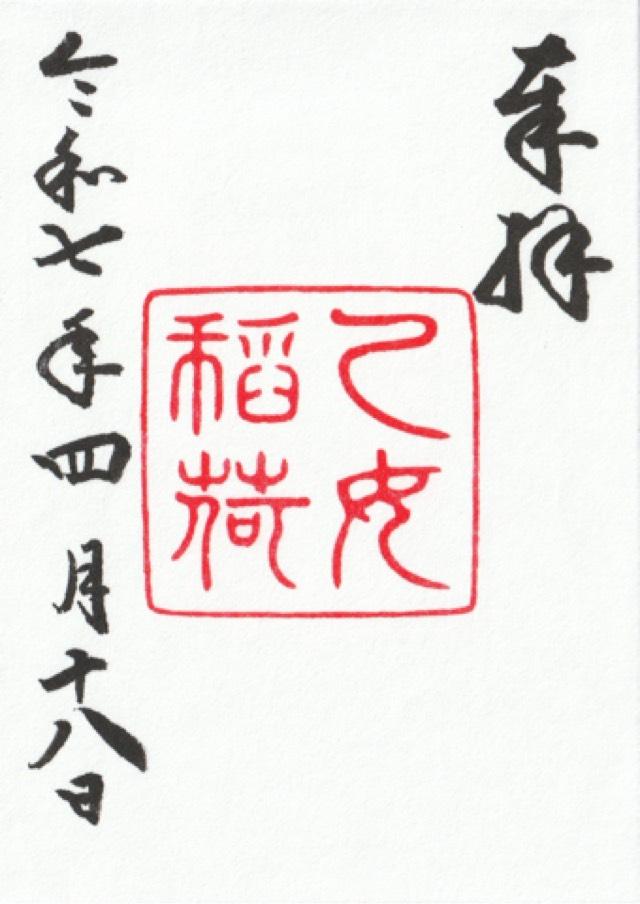 奉拝
乙女
稲荷
令和七年四月十八日